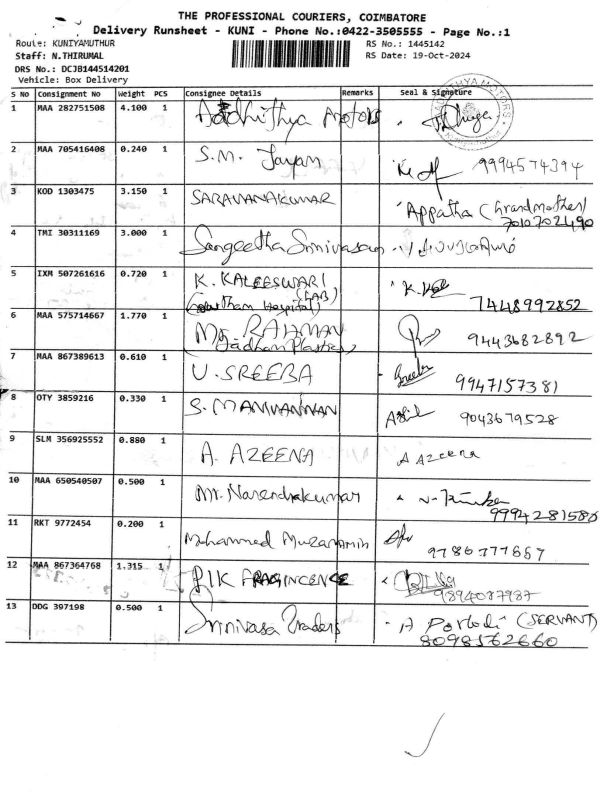 THE PROFESSIONAL COURIERS, COIMBATORE
Delivery Runsheet - KUNI - Phone No.:0422-3505555 - Page No.:1
Route: KUNIYAMUTHUR
RS No.: 1445142
Staff: N.THIRUMAL
RS Date: 19-Oct-2024
DRS No.: DCJB144514201
Vehicle: Box Delivery
S No Consignment No Weight PCS Consignee Details Remarks Seal & Signature
1 MAA 282751508 4.100 1 Addhithya Motors
2 MAA 705416408 0.240 1 S.M. Jayam 9994574394
3 KOD 1303475 3.150 1 SARAVANAKUMAR Appatha (Grandmother)
7010702490
4 TMI 30311169 3.000 1 Sangeetha Srinivasan
5 IXM 507261616 0.720 1 K. KALEESWARI
(LAB)
(Gowtham Hospital) 7448992852
6 MAA 575714667 1.770 1 Mr. RAHMAN 9443682892
7 MAA 867389613 0.610 1 U. SREEBA 9947157381
8 OTY 3859216 0.330 1 S. MANIVANNAN 9043679528
9 SLM 356925552 0.880 1 A. AZEENA A AZeena
10 MAA 650540507 0.500 1 Mr. Narendrakumar
11 RKT 9772454 0.200 1 Mohammed Muzammin 9786777667
12 MAA 867364768 1.315 1 FRAGINCENCE
9894087987
13 DDG 397198 0.500 1 Srinivasa Traders (SERVANT)
8098562660